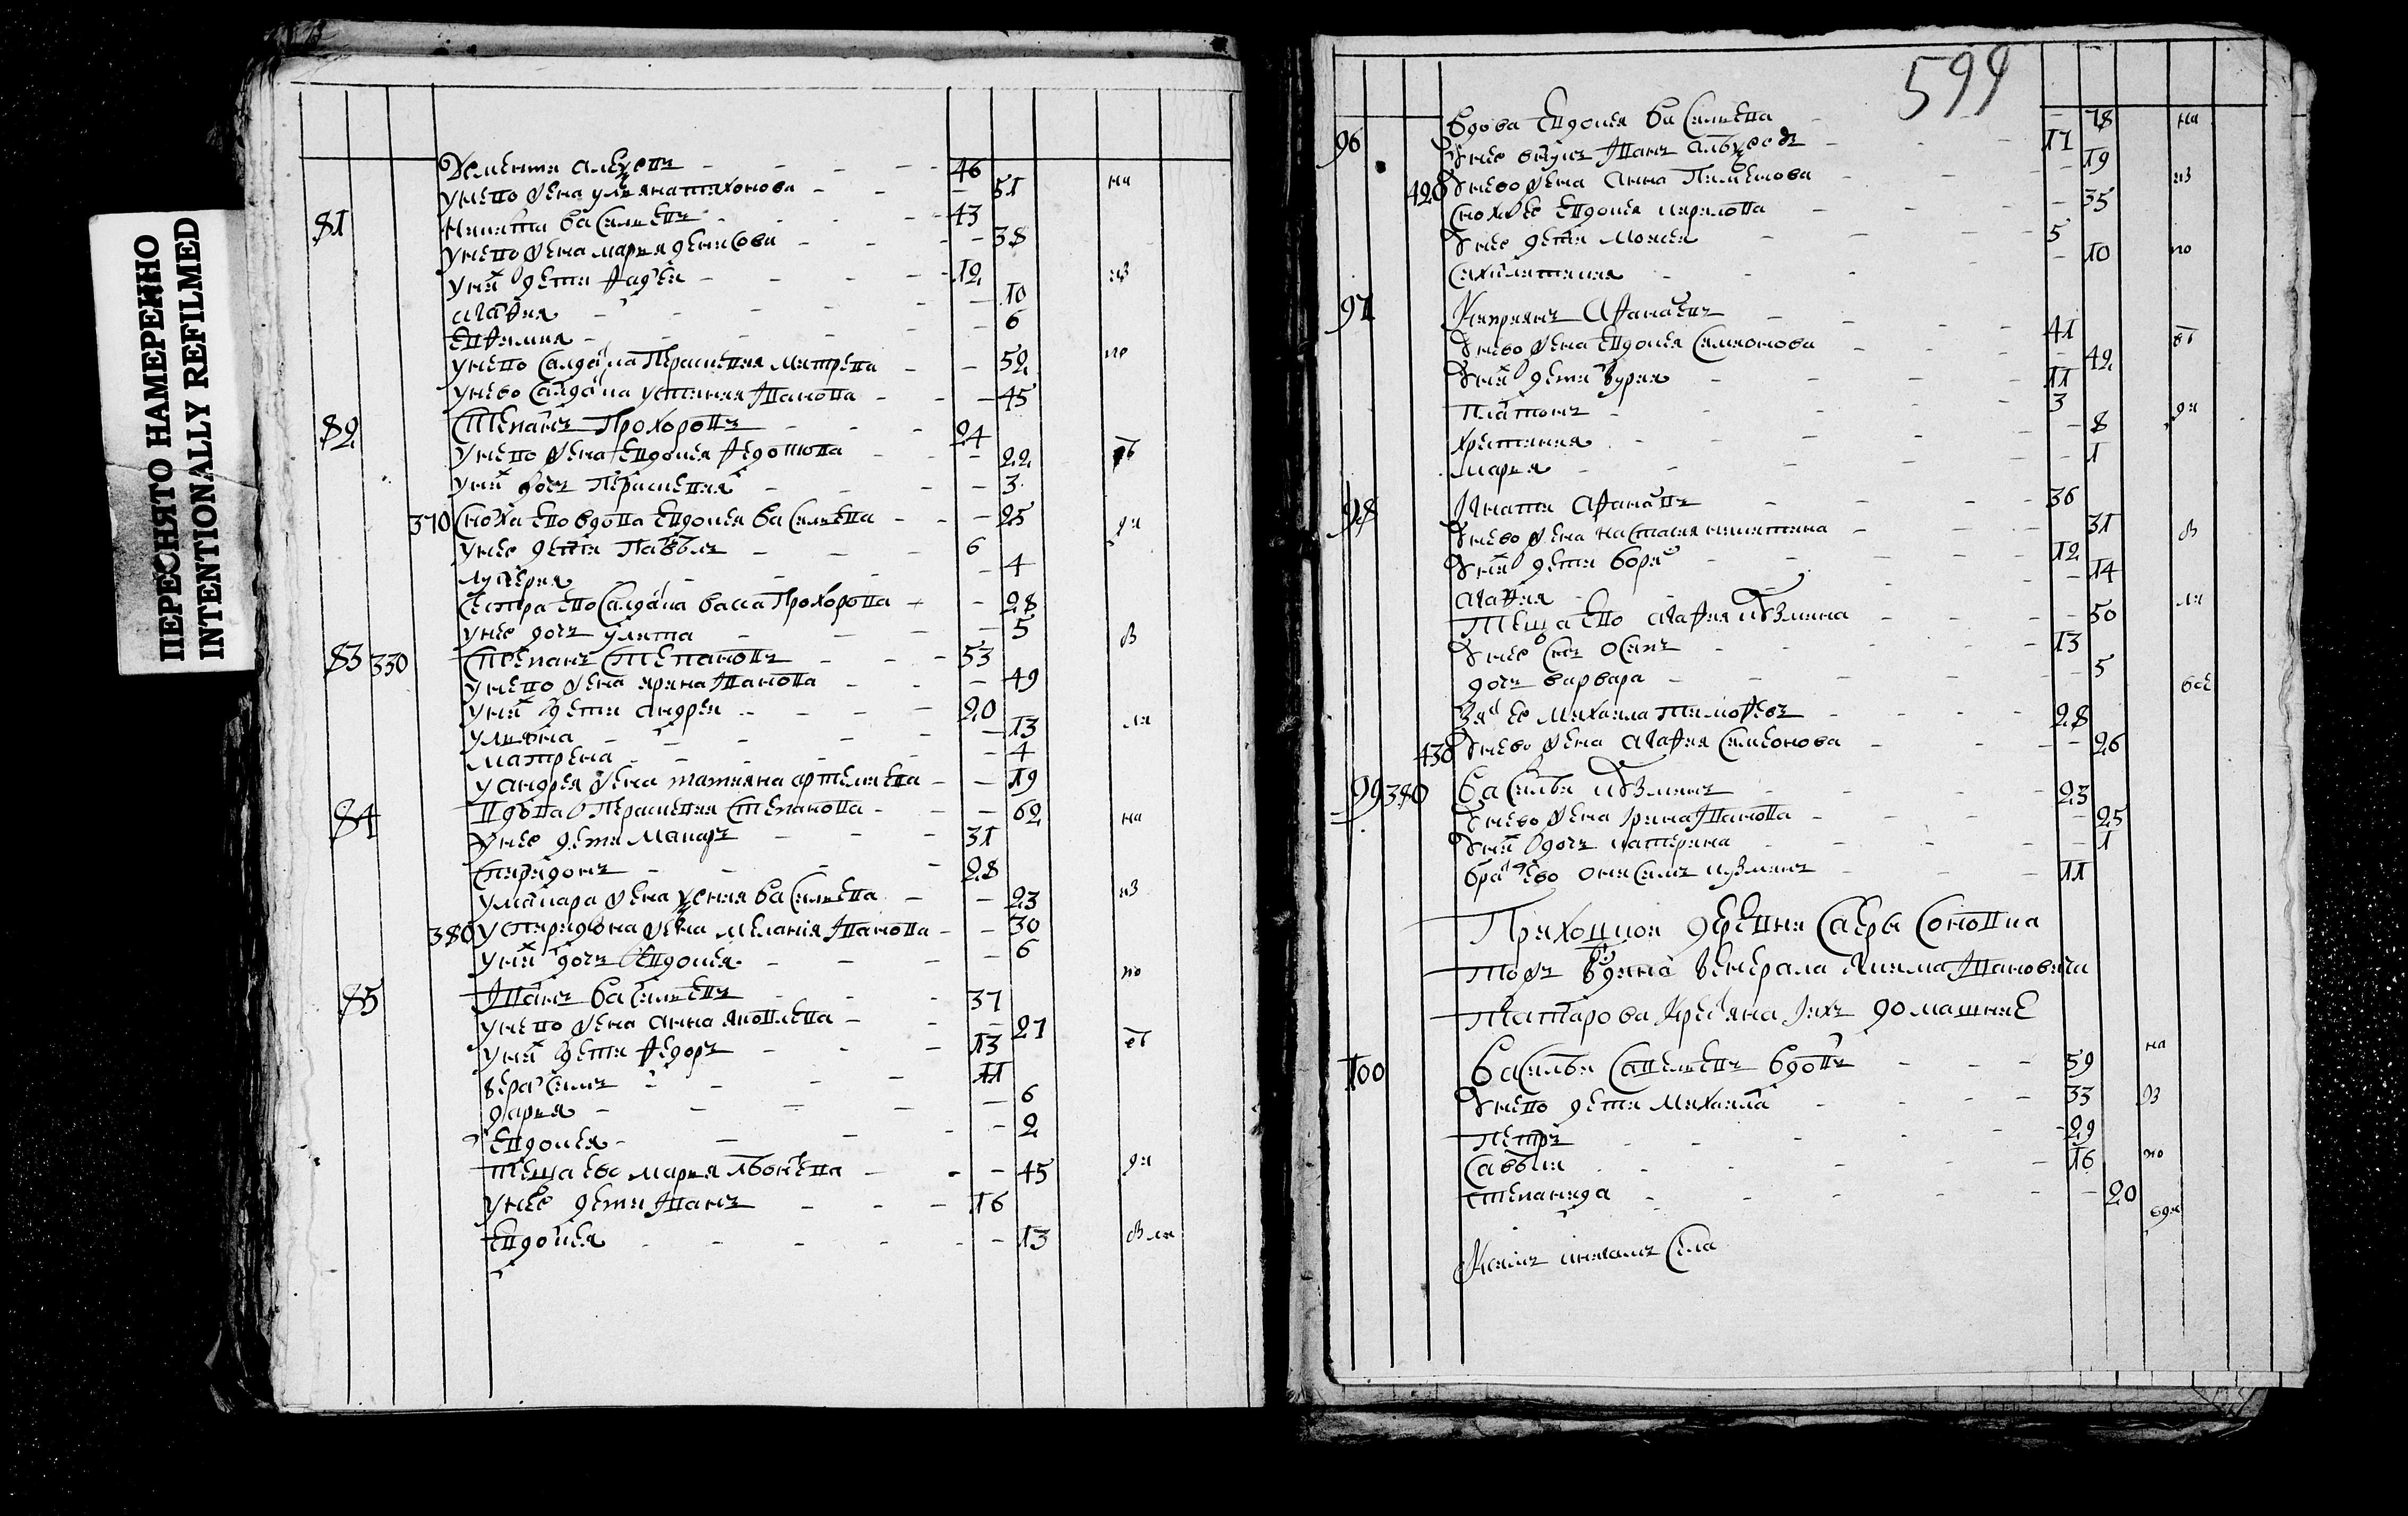 ПЕРЕСНЯТО НАМЕРЕННО
INTENTIONALLY REFILMED
Дементи Алексеевъ 46
у него жена Ульяна Тихонова 51 на
81 Никита Васильевъ 43
у него жена Марья Денисова 38
у них дети Фадей 12 из
Агафия 10
Евфимия 6
у него салдатка Парасковия 52 по
у него салдатка Устиния Иванова 45
82 Степанъ Прохоровъ 24
у него жена Евдокея Федотова 22 ве
у них дочь Парасковия 3
370 сноха ево вдова Евдокея Васильева 25 ди
у нее дети Павелъ 6
Лукерия 4
сестра ево салдатка Васса Прохорова 28
у нее дочь Улита 5 в
83 330 Степанъ Степановъ 53
у него жена Ирина Иванова 49
у них дети Андрей 20
Ульяна 13 ли
Матрена 4
у Андрея жена Татьяна Артемьева 19
84 вдова Парасковия Степанова 62 на
у нее дети Макаръ 31
Спиридонъ 28
у Макара жена Ксения Васильева 23 из
380 у Спиридона жена Мелания Иванова 30
у них дочь Евдокея 6 по
85 Иванъ Васильевъ 37
у него жена Анна Яковлева 27
у них дети Федоръ 13 ве
Герасимъ 11
Дарья 6
Евдокея 2
теща ево Марья 45 ди
у нее дети Иванъ 16
Евдокея 13 в ли
599
вдова Евдокея Васильева 78 на
96 у нее внукъ Иванъ 17
420 у него жена Анна Пименова 19 из
сноха ее Евдокея Кирилова 35
у нее дети Моисей 5
10 по
97 Киприянъ Афанасьевъ 41
у него жена Евдокея Симионова 42 ве
у них дети Гурия 11
Платонъ 3
Христиния 8 ди
Марья 1
98 Игнати Афанасьевъ 36
у него жена Настасия Никитина 31 в
у них дети Борис 12
Агафия 14
теща ево Агафия Кузмина 50 ли
у нее сынъ Осипъ 13
дочь Варвара 5 все
зять ее Михаила Тимофеевъ 28
430 у него жена Агафия Симеонова 26
99 380 Василей Кузминъ 23
у него жена Ирина Иванова 25
у них дочь Катерина 1
братъ ево Онисимъ Кузминъ 11
Приходской деревни
генерала Акима Ивановича
Татарова крестьяна и их домашние
100 Василей Савельевъ вдовъ 59 на
у него дети Михаила 33 из
Петръ 29
Савелей 16 по
Степанида 20